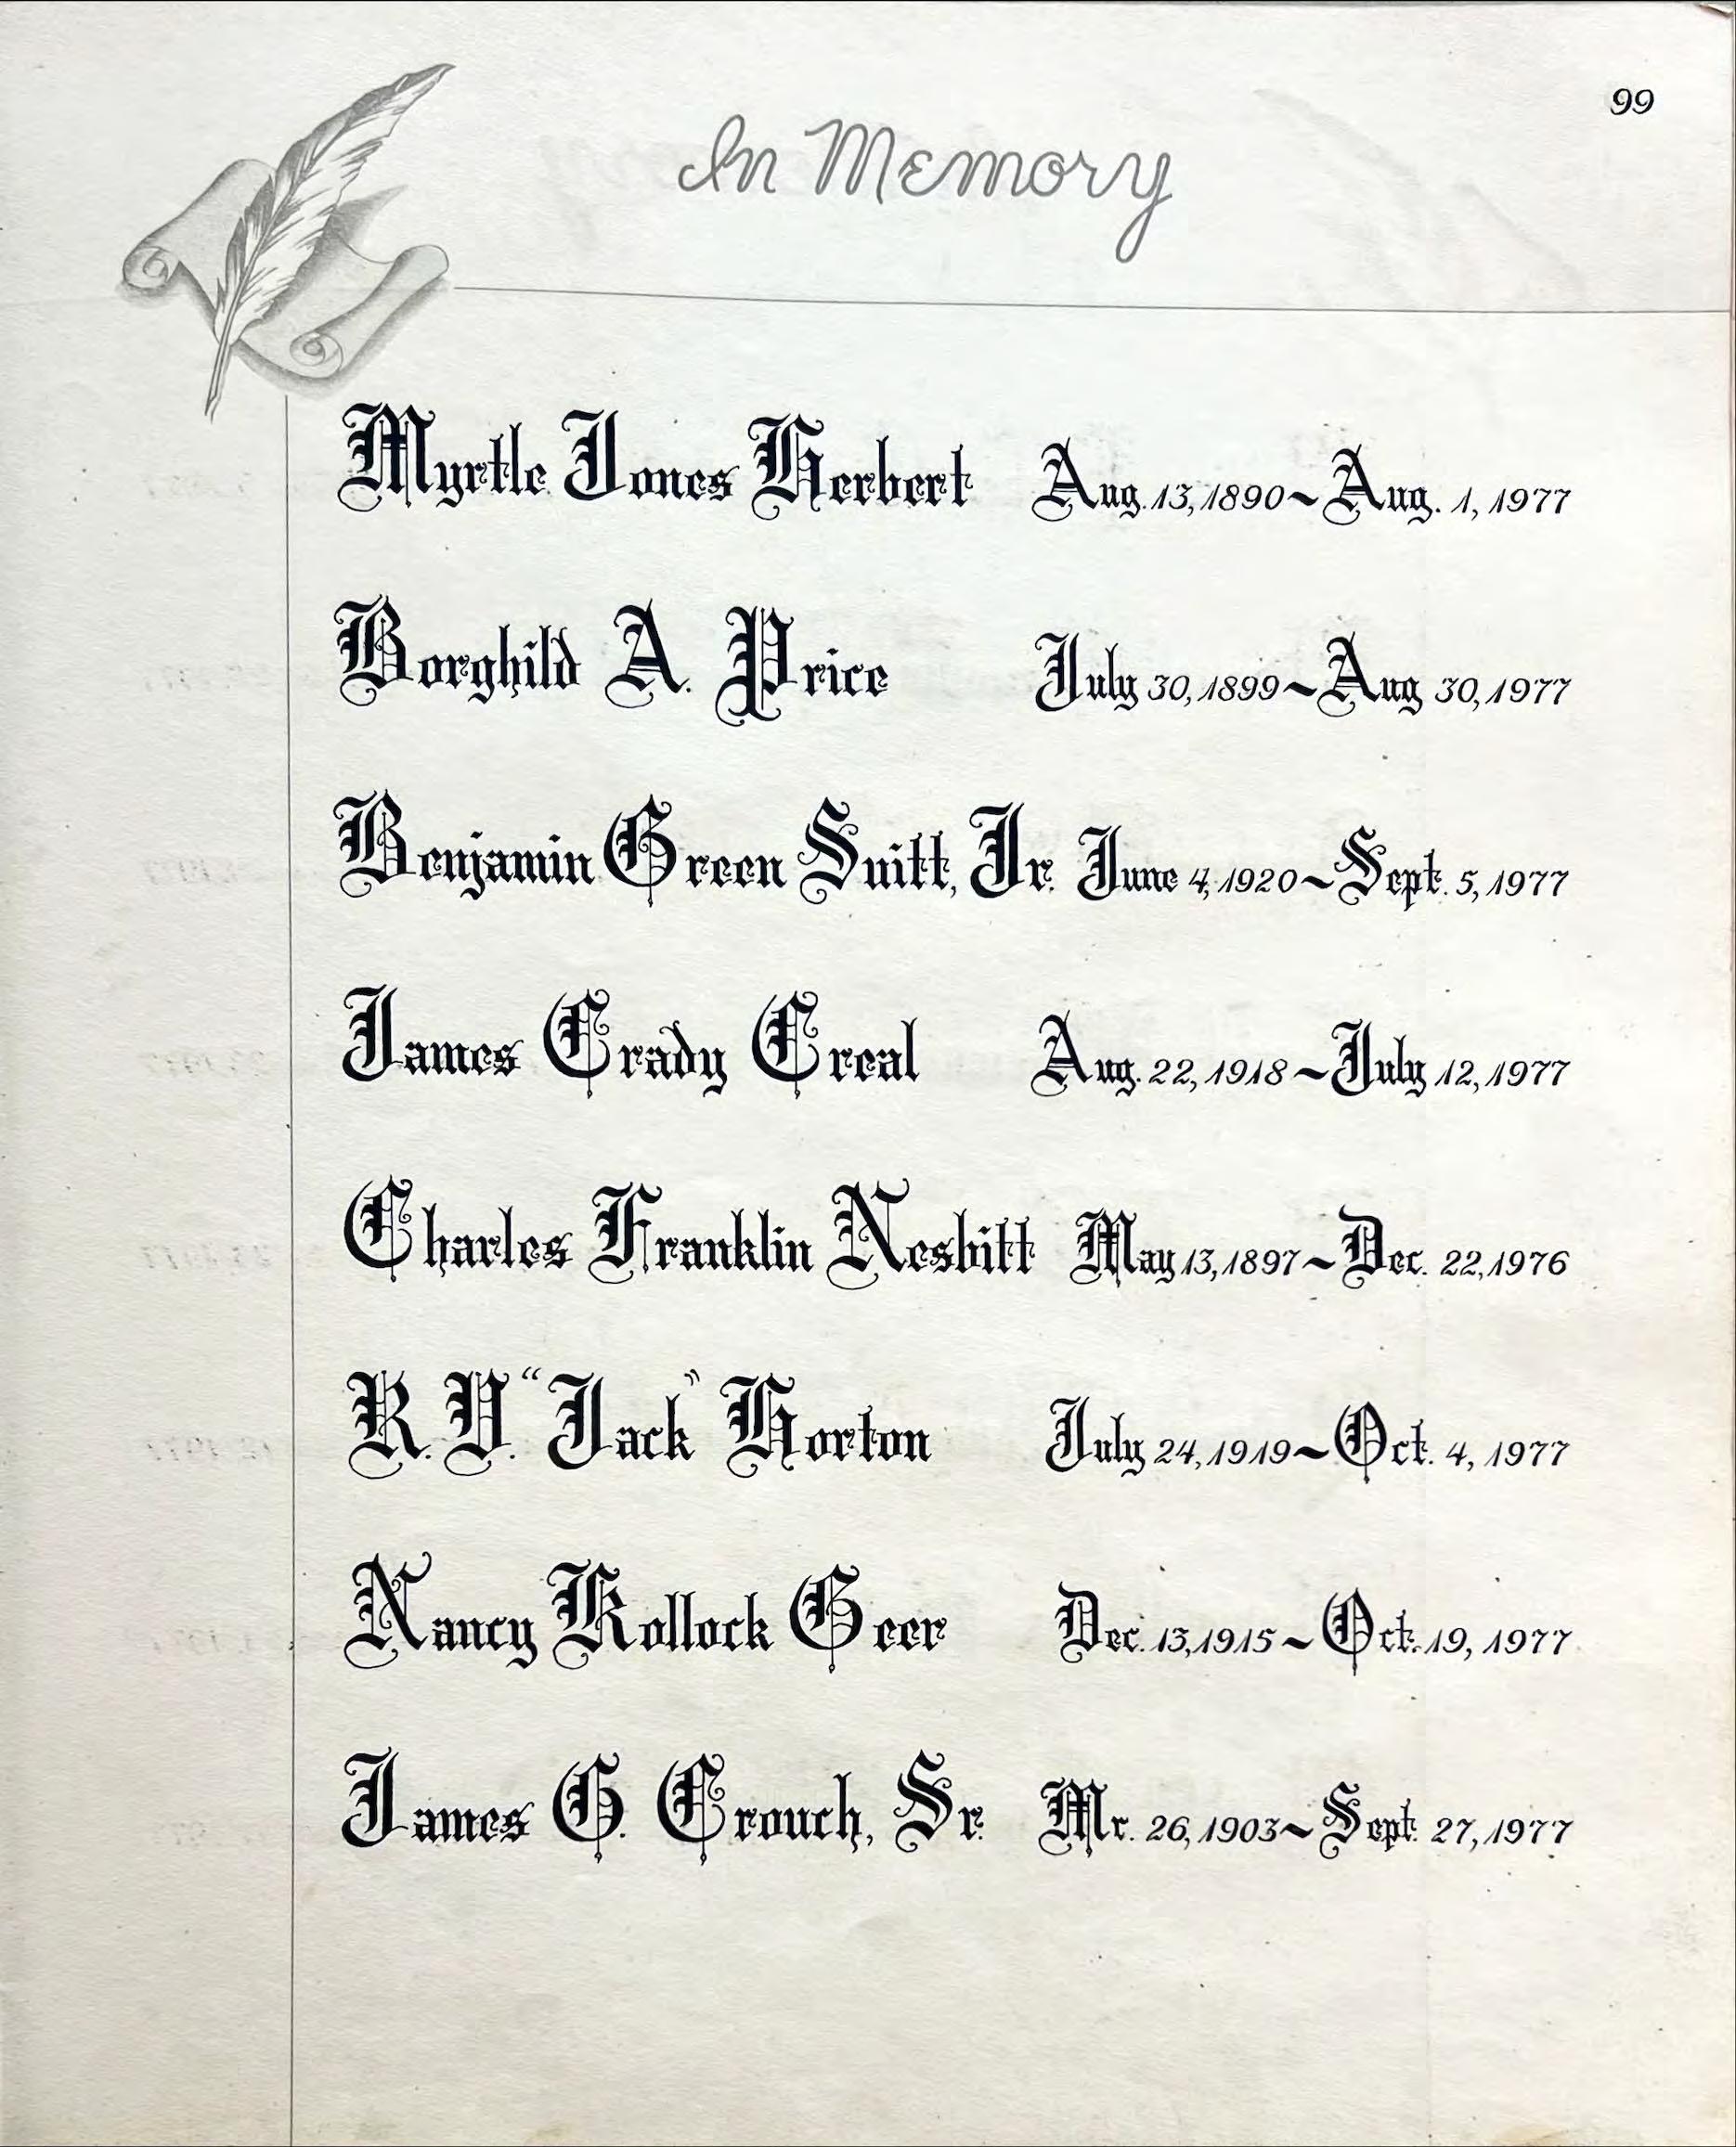 99
In Memory
Myrtle Jones Herbert Aug. 13, 1890 ~ Aug. 1, 1977
Borghild A. Price July 30, 1899 ~ Aug 30, 1977
Benjamin Green Suitt, Jr. June 4, 1920 ~ Sept. 5, 1977
James Crady Creal Aug. 22, 1918 ~ July 12, 1977
Charles Franklin Nesbitt May 13, 1897 ~ Dec. 22, 1976
R. V. “Jack” Horton July 24, 1919 ~ Oct. 4, 1977
Nancy Kollock Geer Dec. 13, 1915 ~ Oct. 19, 1977
James G. Crouch, Sr. Mr. 26, 1903 ~ Sept. 27, 1977